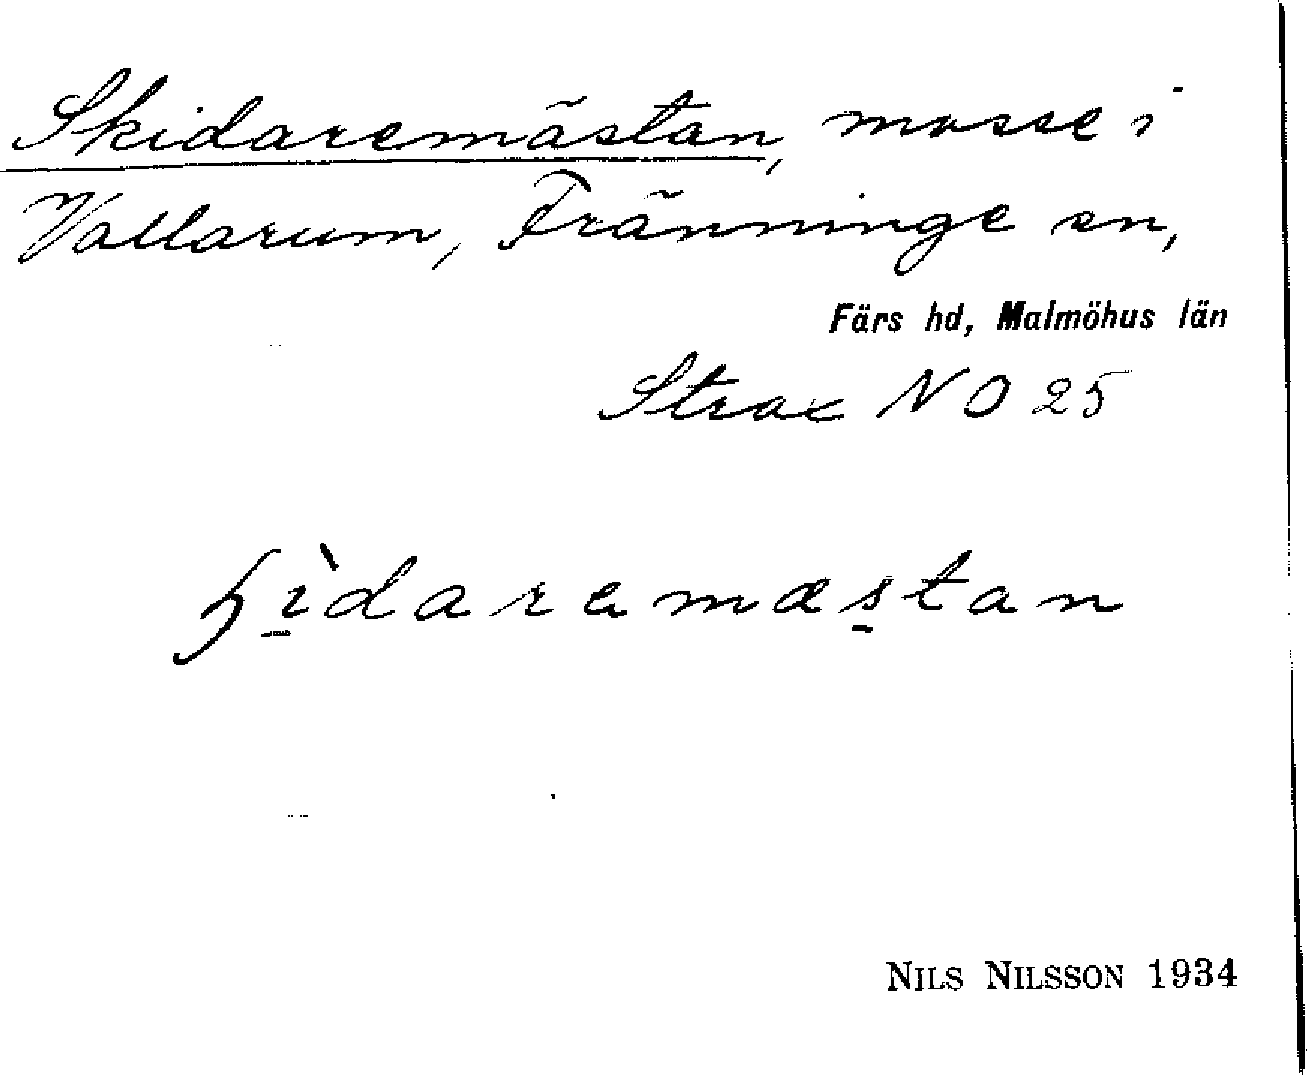 Skidaremästan, mosse i
Vallarum, Fränninge sn,
Färs hd, Malmöhus län
Strax NO 25
ʃìdaremæstan
NILS NILSSON 1934